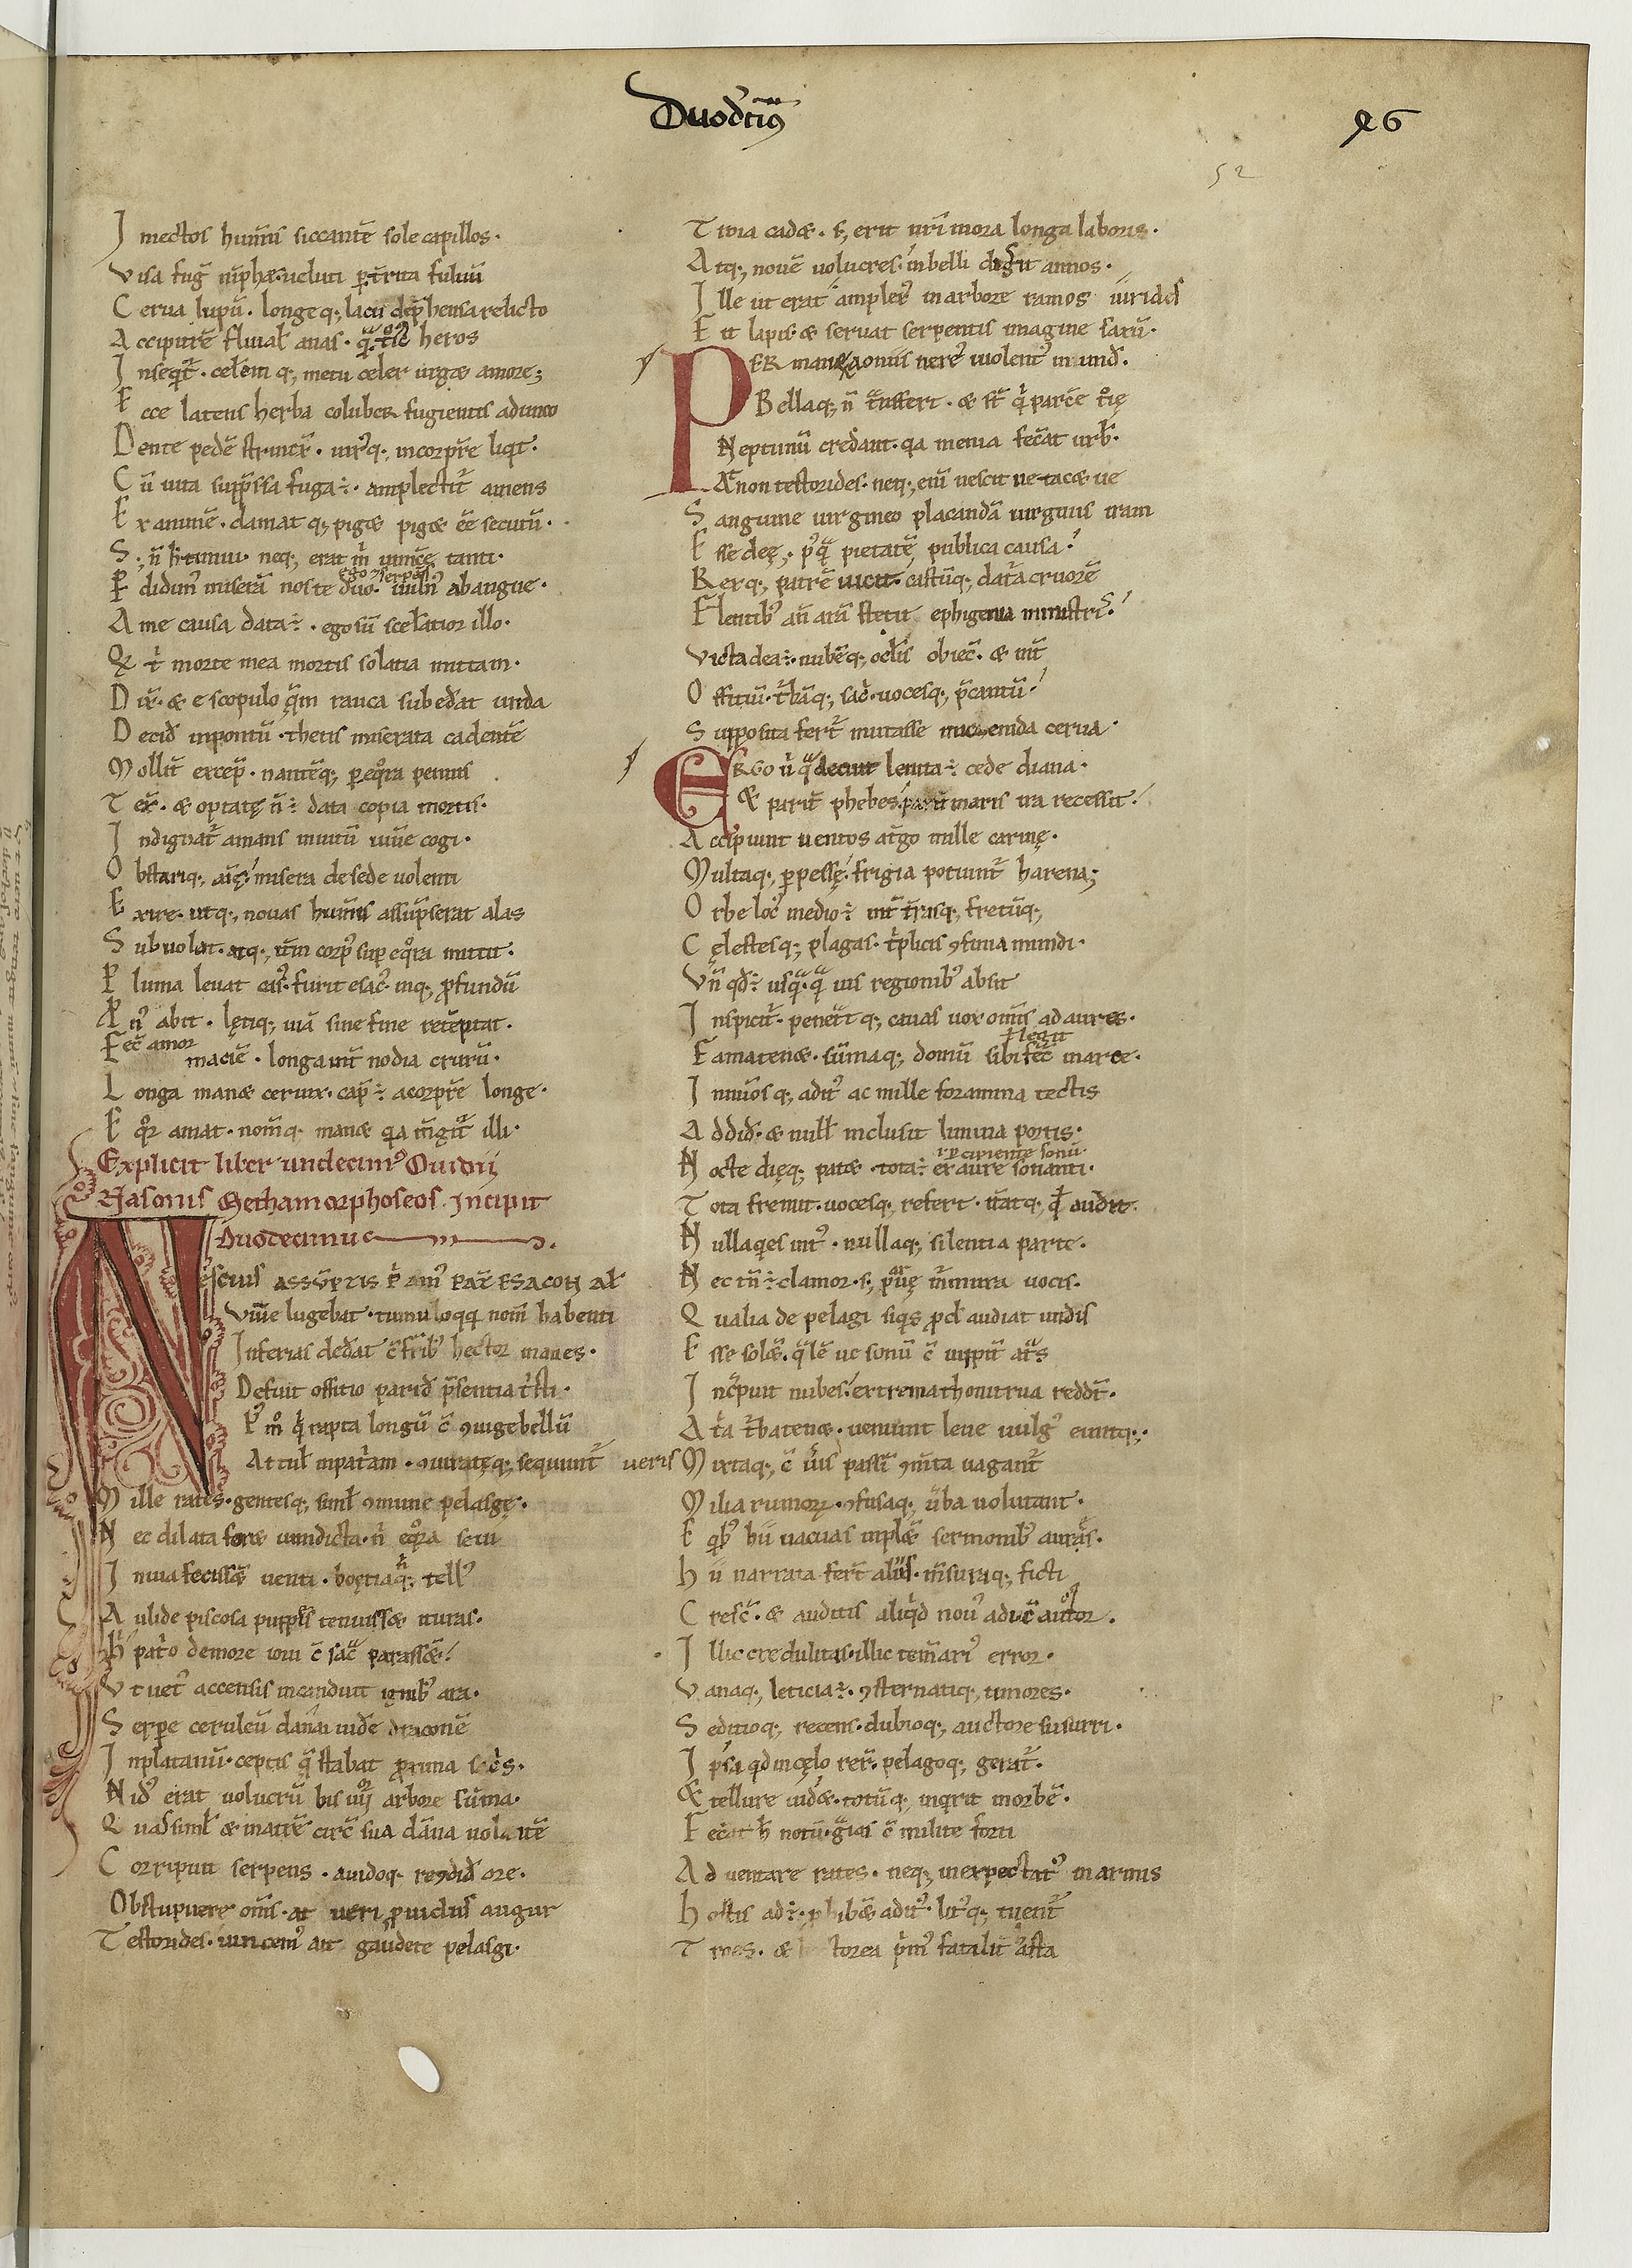 Duodeciᷤ
96
52
I niectos humis siccantē sole capillos.
Visa fug̃ nīphæ. ueluti ꝑtr̃ita fuluū
C erua lupū. longeq; lacu dep̄hensa relicto
A ccipitrē fluuial̃ anas. heros
I nseq̇t̃. cel̃em q; metu celer urgæ amore;
E cce latens herba coluber fugientis adunco
Dente pedē strinx̃. uirꝰq; in corpr̃e liq̇t.
C ū uita supp̄ssa fuga ÷. amplectit̃ amens
E xanimē. clamat q; pigæ pigæ ēe secutū.
S; ñ h̃ timui. neq; erat m̃ uinc̃e tanti.
ego serpēs
P̱ didimꝰ miserā nos te duo. uuln̄ ab angue.
A me causa data ÷. ego sū scel̃atior illo.
Q t̃ morte mea mortis solatia mittam.
D ix̃. æ e scopulo q̃m rauca subed̃at unda
D ecid̃ in pontū. thetis miserata cadentē
Mollit̃ excep̃. nantēq; ꝑ eq̊ra pennis
T ex̃. æ optatę ñ ÷ data copia mortis.
I ndignat̃ amans inuitū uiu̅e cogi.
O bstariq; aīę. misera de sede uolenti
E xire. utq; nouas humis assūpserat alas
S ubuolat. atq; itm̃ corpꝰ sup eq̊ra mittit.
P luma leuat casꝰ. furit esac̃. inq; ꝓfundū
P nꝰ abit. lętiq; uiā sine fine retēptat.
Fec̃ amor
maciē. longa int̃nodia crurū.
L onga manæ ceruix. cap̃ ÷ a corpr̃e longe.
E q̊r amat. nom̃q. manæ qa m̃git̃ illi.
Explicit liber undecimꝰ Ouidij
Nasonis Methamorphoseos. Incipit
Duodecimus
Nescius assūptis p̃amꝰ pat̃ esacon al̃
Viũe lugebat. tumulo qq̨ nom̃ habenti
Inferias ded̃at c̄ fr̃ibꝰ hector inanes.
Defuit offitio parid̃ p̄sentia t̃sti.
P̃ m̊ q̇ rapta longū c̄ ꝯiuge bellū
Attul̃ in pat̃am. ꝯiuratęq; sequunt̃
M ille rates. gentesq; simł ꝯmune pelasgę.
N ec dilata foræ uindicta. ñ eq̊ra seui
I nuia fecissēt uenti. boętiaq; tellꝰ
A ulide piscosa puppis tenuissæ ituras.
h̃ pat̃o de more ioui c̄ sac̃ parassēt.
V t uet̃ accensis incanduit ignibꝰ ara.
S erpe ceruleū danai uide draconē
I n platanū. ceptis q̄ stabat ꝓxima sac̃s.
N idꝰ erat uolucrū bis iiij arbore sūma.
Q uas simł æ matrē circ̄ sua dāna uolātē
C orripuit serpens. auidoq. reꝯdid̃ ore.
Obstupuere oms̄. at ueri ꝓuidus augur
T estorides. uincemꝰ ait gaudete pelasgi.
T roia cadæ. s; erit nr̃i mora longa laboris.
A tq; nouē uolucres in belli digerit annos.
I lle ut erat amplexꝰ in arbore ramos uirides
F it lapis. æ seruat serpentis imagine saxū.
P ER manæ aoniis nereꝰ uiolentꝰ in und̃.
Bellaq; ñ t̃nsfert. æ st̃ q̇ parc̃e t̊ię
Neptunū credant. qa menia fec̃at urb̃.
At non testorides. neq; eni̅ nescit ue tacæ ue
S anguine uirgineo placandā uirginis iram
E sse deę. pꝰq̃ pietatē publica causa.
R exq; patrē uicit. castūq; dat̃a cruorē
F lentibꝰ añ arā stetit ephigenia ministris.
Victa dea ÷. nubēq; ocl̃is obiec̃. æ int̃
O ffitiū. t̃bāq; sac̃. uocesq; p̄cantū.
S upposita fert̃ mutasse micenida cerua
ERGO ũ q̃ decuit lenita ÷ cede diana.
& parit̃ phebes. parit̃ maris ira recessit.
A ccipiunt uentos a t̃go mille carinę.
Multaq; ꝑpessę. frigia potiunt̃ harena;
O rbe locꝰ medio ÷ int̃ t̃rasq; fretūq;
C ęlestesq; plagas. t̃plicis ꝯfinia mundi.
Vñ qd̃ ÷ usq̃. q̃ uis regionibꝰ absit
I nspicit̃. penet̃t q; cauas uox omis ad aures.
ł legit
F ama tenæ. sūmaq; domū sibi fec̃ in arce.
I nnũosq; aditꝰ ac mille foramina tectis
A ddid̃. æ null̃ inclusit limina portis.
ꝑcipiente sonū
N octe dięq; patæ. tota ÷ ex aure sonanti.
T ota fremit. uocesq; refert. it̃atq; qd̃ audit.
N ulla q̇es intꝰ. nullaq; silentia parte.
N ec tñ ÷ clamor. s; paruę m̃mura uocis.
Q ualia de pelagi siq̇s ꝓcl̃ audiat undis
E sse solēt. q̃lē ue sonū c̄ iuppit̃ at̃s
I nc̃puit nubes. extrema thonitrua reddt̃.
A t̃a t̃ba tenæ. ueniunt leue uulgꝰ euntq;.
ueris M ixtaq; c̄ ũis passī ꝯmta uagant̃
M ilia rumoꝝ. ꝯfusaq; ũba uolutant.
E q̇bꝰ hii uacuas inplēt sermonibꝰ auras.
h ii narrata fer̃t aliis. m̃suraq; ficti
C resc̃. æ auditis aliq̇d nouꝰ adic̃ autor.
I llic credulitas. illic tem̃ariꝰ error.
V anaq; leticia ÷. ꝯsternatiq; timores.
S editioq; recens. dubioq; auctore susurri.
I psa qd in cęlo rer̃. pelagoq; gerat̃.
& tellure uidæ. totūq; inqrit in orbē.
F ec̃at h̃ notū. g̃ias c̄ milite forti
A d uentare rates. neq; inexpectatꝰ in armis
h ostis ad ÷. phibēt aditꝰ. litꝰq; tuent̃
T roes. æ torea p̃mꝰ fatalit̃ asta